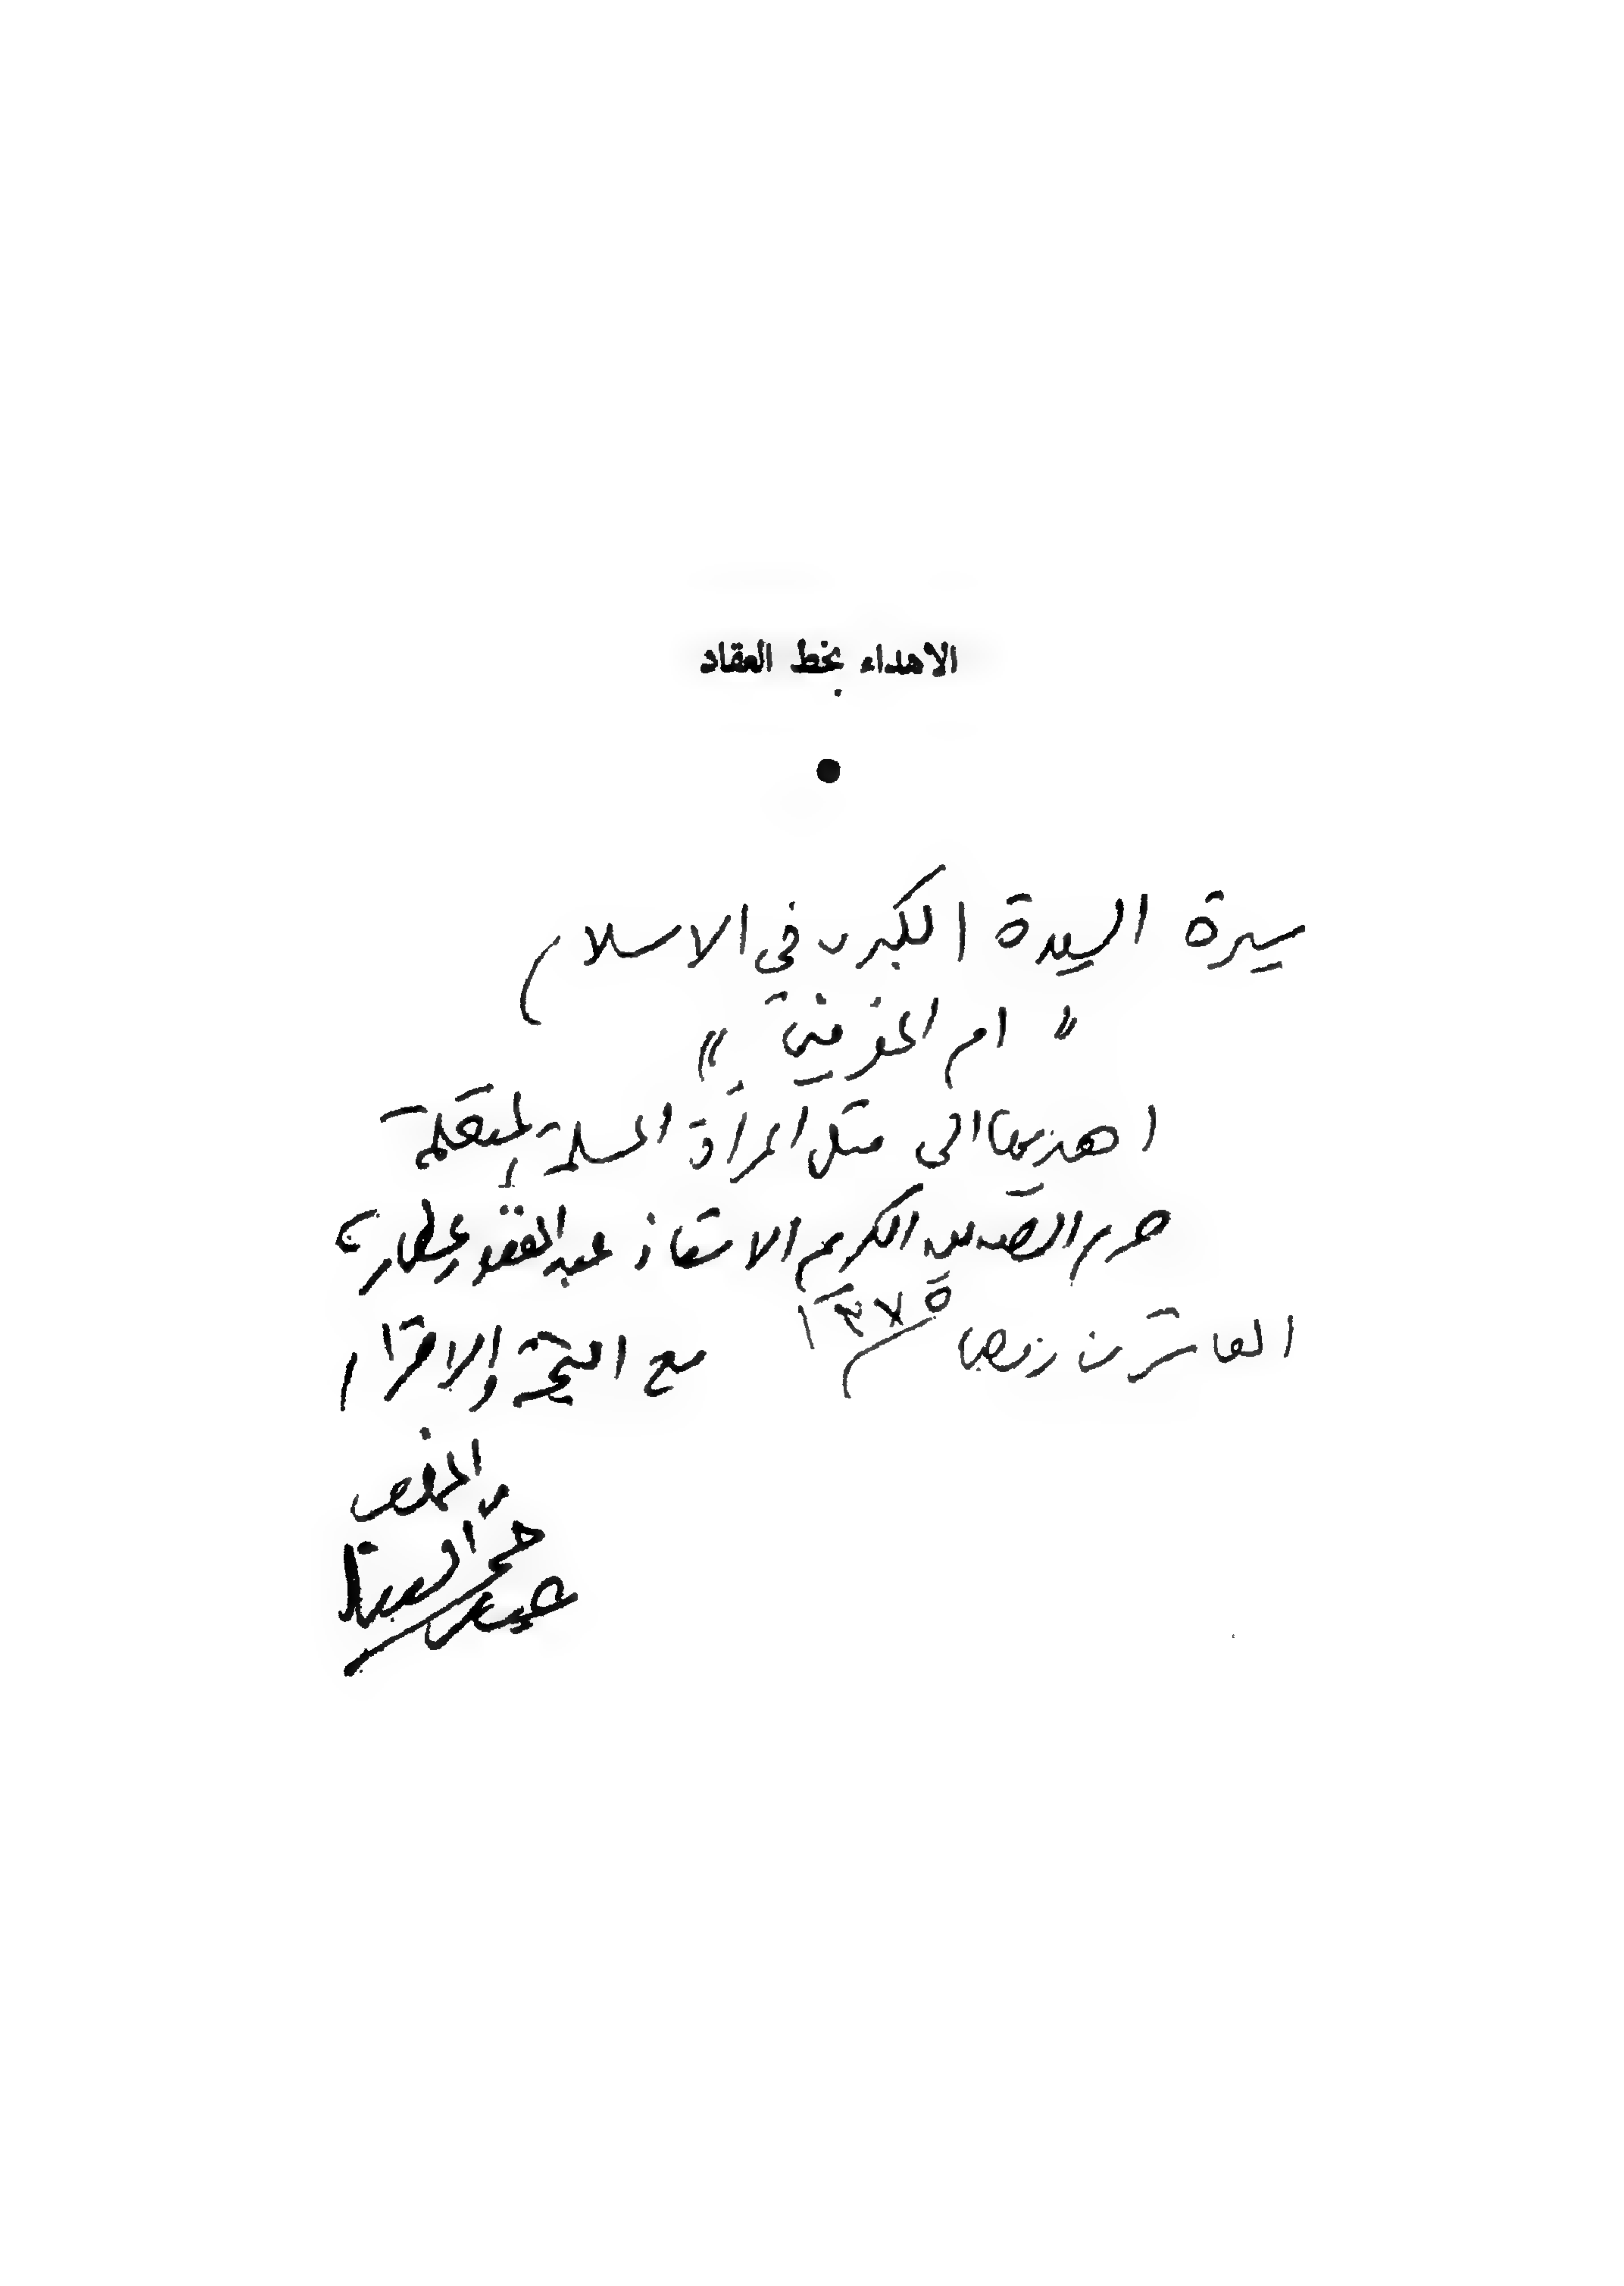 الاهداء بخط العقاد
سيرة السيدة الكبرى في الاسلام
" ام المؤمنين "
اهديها الى مثل المرأة المسلمة المتعلمة
حرم الصديق الكريم الاستاذ عبد الغفور عطار
العاشر من رمضان ١٣٧٥ مع التحية والاحترام
المخلص
عباس محمود العقاد